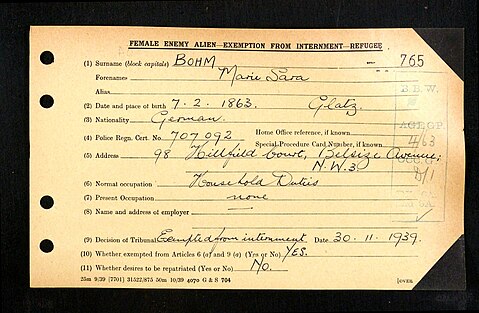 FEMALE ENEMY ALIEN—EXEMPTION FROM INTERNMENT—REFUGEE
(1) Surname (block capitals) BOHM 765
Forenames Marie Sara
Alias
B.B.W.
(2) Date and place of birth 7. 2. 1863. Glatz.
(3) Nationality German.
AGE GP
(4) Police Regn. Cert. No. 707 092 Home Office reference, if known
Special Procedure Card Number, if known
4/63
(5) Address 98 Hillfield Court, Belsize Avenue,
N.W.3.
(6) Normal occupation Household Duties
(7) Present Occupation none
(8) Name and address of employer —
(9) Decision of Tribunal Exempted from internment. Date 30. 11. 1939.
(10) Whether exempted from Articles 6 (a) and 9 (a) (Yes or No) YES.
(11) Whether desires to be repatriated (Yes or No) No.
25m 9/39 [7701] 31522/875 50m 10/39 4070 G & S 704 [OVER